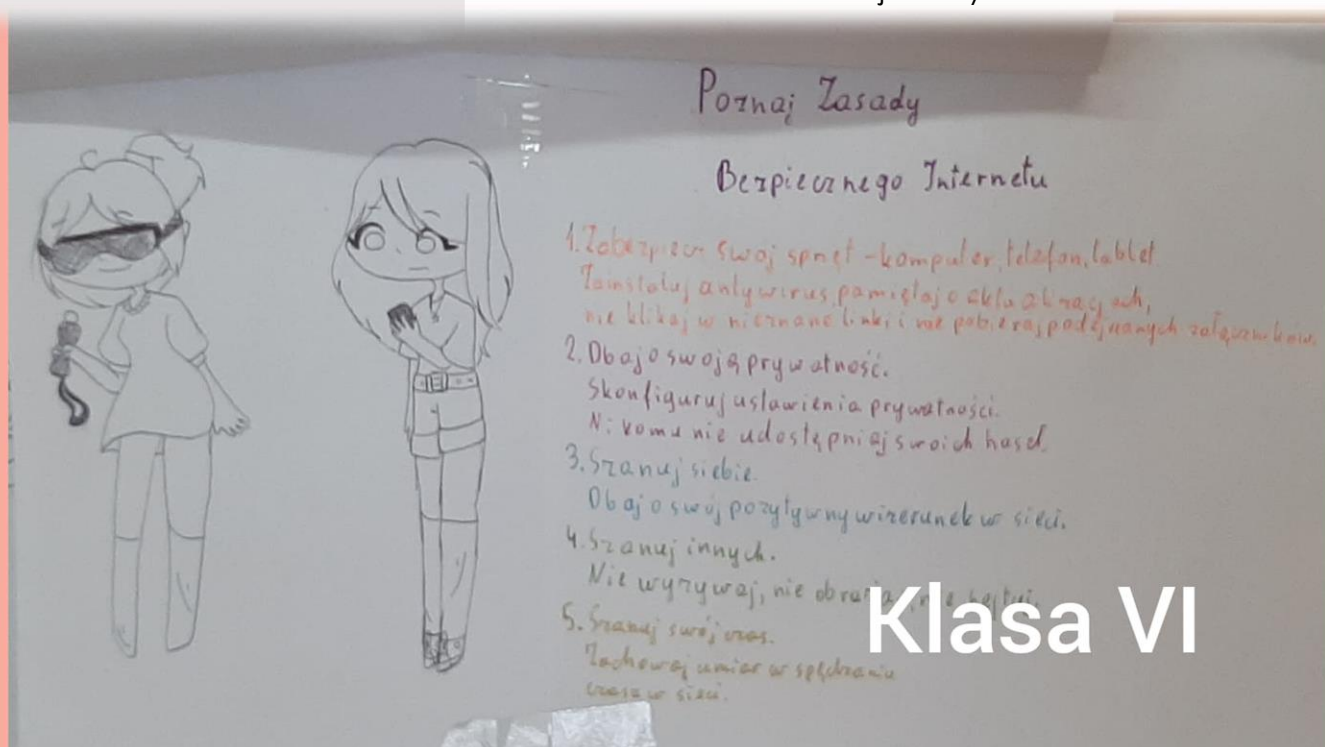 Poznaj Zasady
Bezpiecznego Internetu
1. Zabezpiecz swoj sprzęt - komputer, telefon, tablet
Zainstaluj antywirus, pamiętaj o aktualizacjach,
nie klikaj w nieznane linki i nie pobieraj podejrzanych załączników.
2. Dbaj o swoją prywatność.
Skonfiguruj ustawienia prywatności.
Nikomu nie udostępniaj swoich haseł.
3. Szanuj siebie.
Dbaj o swój pozytywny wizerunek w sieci.
4. Szanuj innych.
Nie wyzywaj, nie obrażaj, nie hejtuj.
5. Szanuj swój czas.
Zachowaj umiar w spędzaniu
czasu w sieci.
Klasa VI